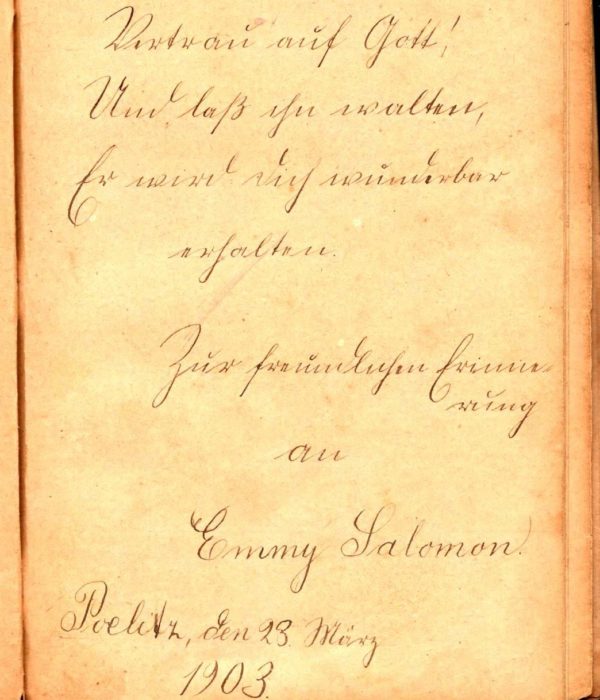 Vertrau auf Gott!
Und laß ihn walten,
Er wird dich wunderbar
erhalten.
Zur freundlichen Erinne-
rung
an
Emmy Salomon.
Poelitz, den 23. März
1903.